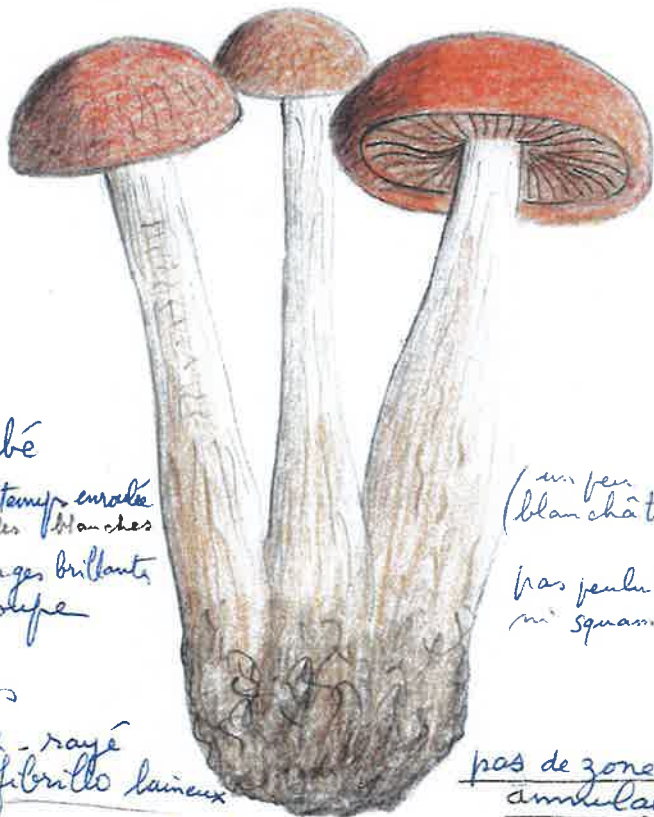 bé
temps enroulée
les blanches
ges brillants
coupe
s
- rayé
fibrillo laineux
(un peu
blanchât
pas pelu
ni squam
pas de zone
annulai